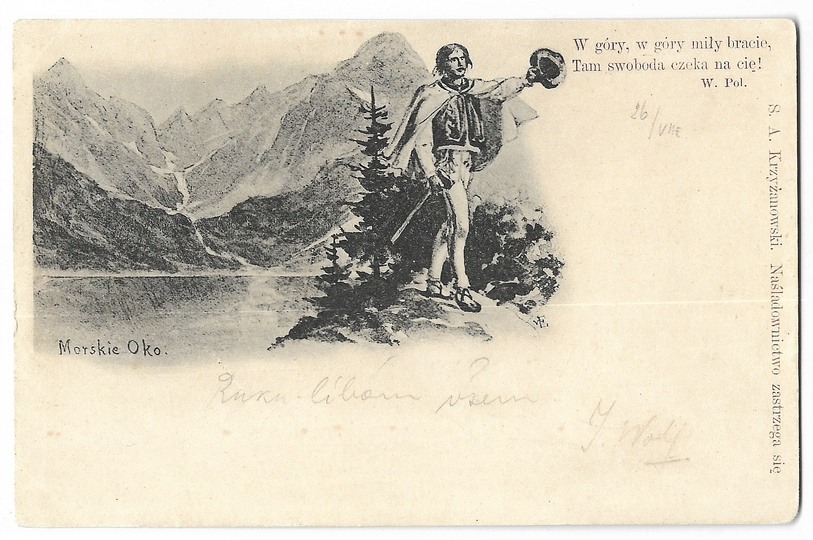 W góry, w góry miły bracie,
Tam swoboda czeka na cię!
W. Pol.
26/VIII
S. A. Krzyżanowski. Naśladownictwo zastrzega się
Morskie Oko.
Ruku líbám všem
J. Wolf